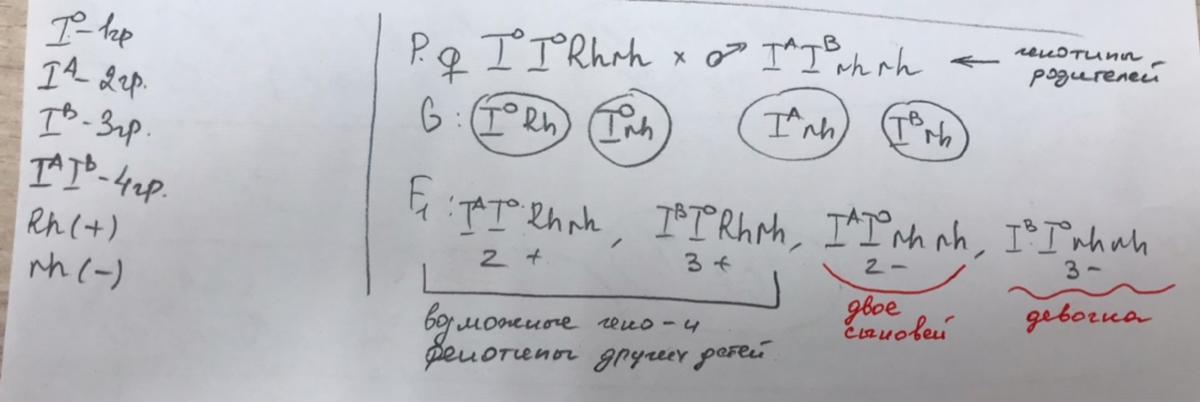 I⁰ - 1гр
Iᴬ - 2гр.
Iᴮ - 3гр.
IᴬIᴮ - 4гр.
Rh (+)
rh (-)
P. ♀ I⁰I⁰Rhrh × ♂ IᴬIᴮrhrh ← генотипы
родителей
G: I⁰Rh I⁰rh Iᴬrh Iᴮrh
F₁: IᴬI⁰Rhrh, IᴮI⁰Rhrh, IᴬI⁰rhrh, IᴮI⁰rhrh
2 + 3 + 2 - 3 -
возможные гено-и
фенотипы других детей
двое
сыновей
девочка